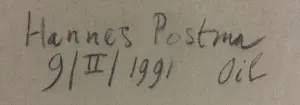 Hannes Postma
9/II/1991 Oil